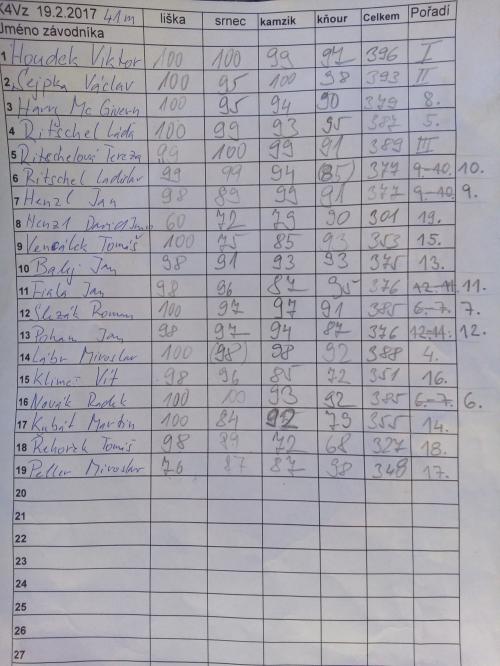 K4Vz 19.2.2017 41m liška srnec kamzik kňour Celkem Pořadí
Jméno závodníka
1 Houdek Viktor 100 100 99 97 396 I
2 Sejpka Václav 100 95 100 98 393 II
3 Harry Mc Givern 100 95 94 90 379 8.
4 Ritschel Láďa 100 99 93 95 387 5.
5 Ritschelová Tereza 99 100 99 91 389 III
6 Ritschel Ladislav 99 99 94 (85) 377 9.-10. 10.
7 Henzl Jan 98 89 99 91 377 9.-10. 9.
8 Henzl 60 72 79 90 301 19.
9 Vencálek Tomáš 100 75 85 93 353 15.
10 Balej Jan 98 91 93 93 375 13.
11 Fiala Jan 98 96 87 95 376 11.
12 Slezák Roman 100 97 97 91 385 6.-7. 7.
13 Pohan Jan 98 97 94 87 376 12.
14 Lábr Miroslav 100 (98) 98 92 388 4.
15 Klimeš Vít 98 96 85 72 351 16.
16 Novák Radek 100 100 93 92 385 6.-7. 6.
17 Kubát Martin 100 84 92 79 355 14.
18 Řehořek Tomáš 98 89 72 68 327 18.
19 Peller Miroslav 76 87 87 98 348 17.
20
21
22
23
24
25
26
27